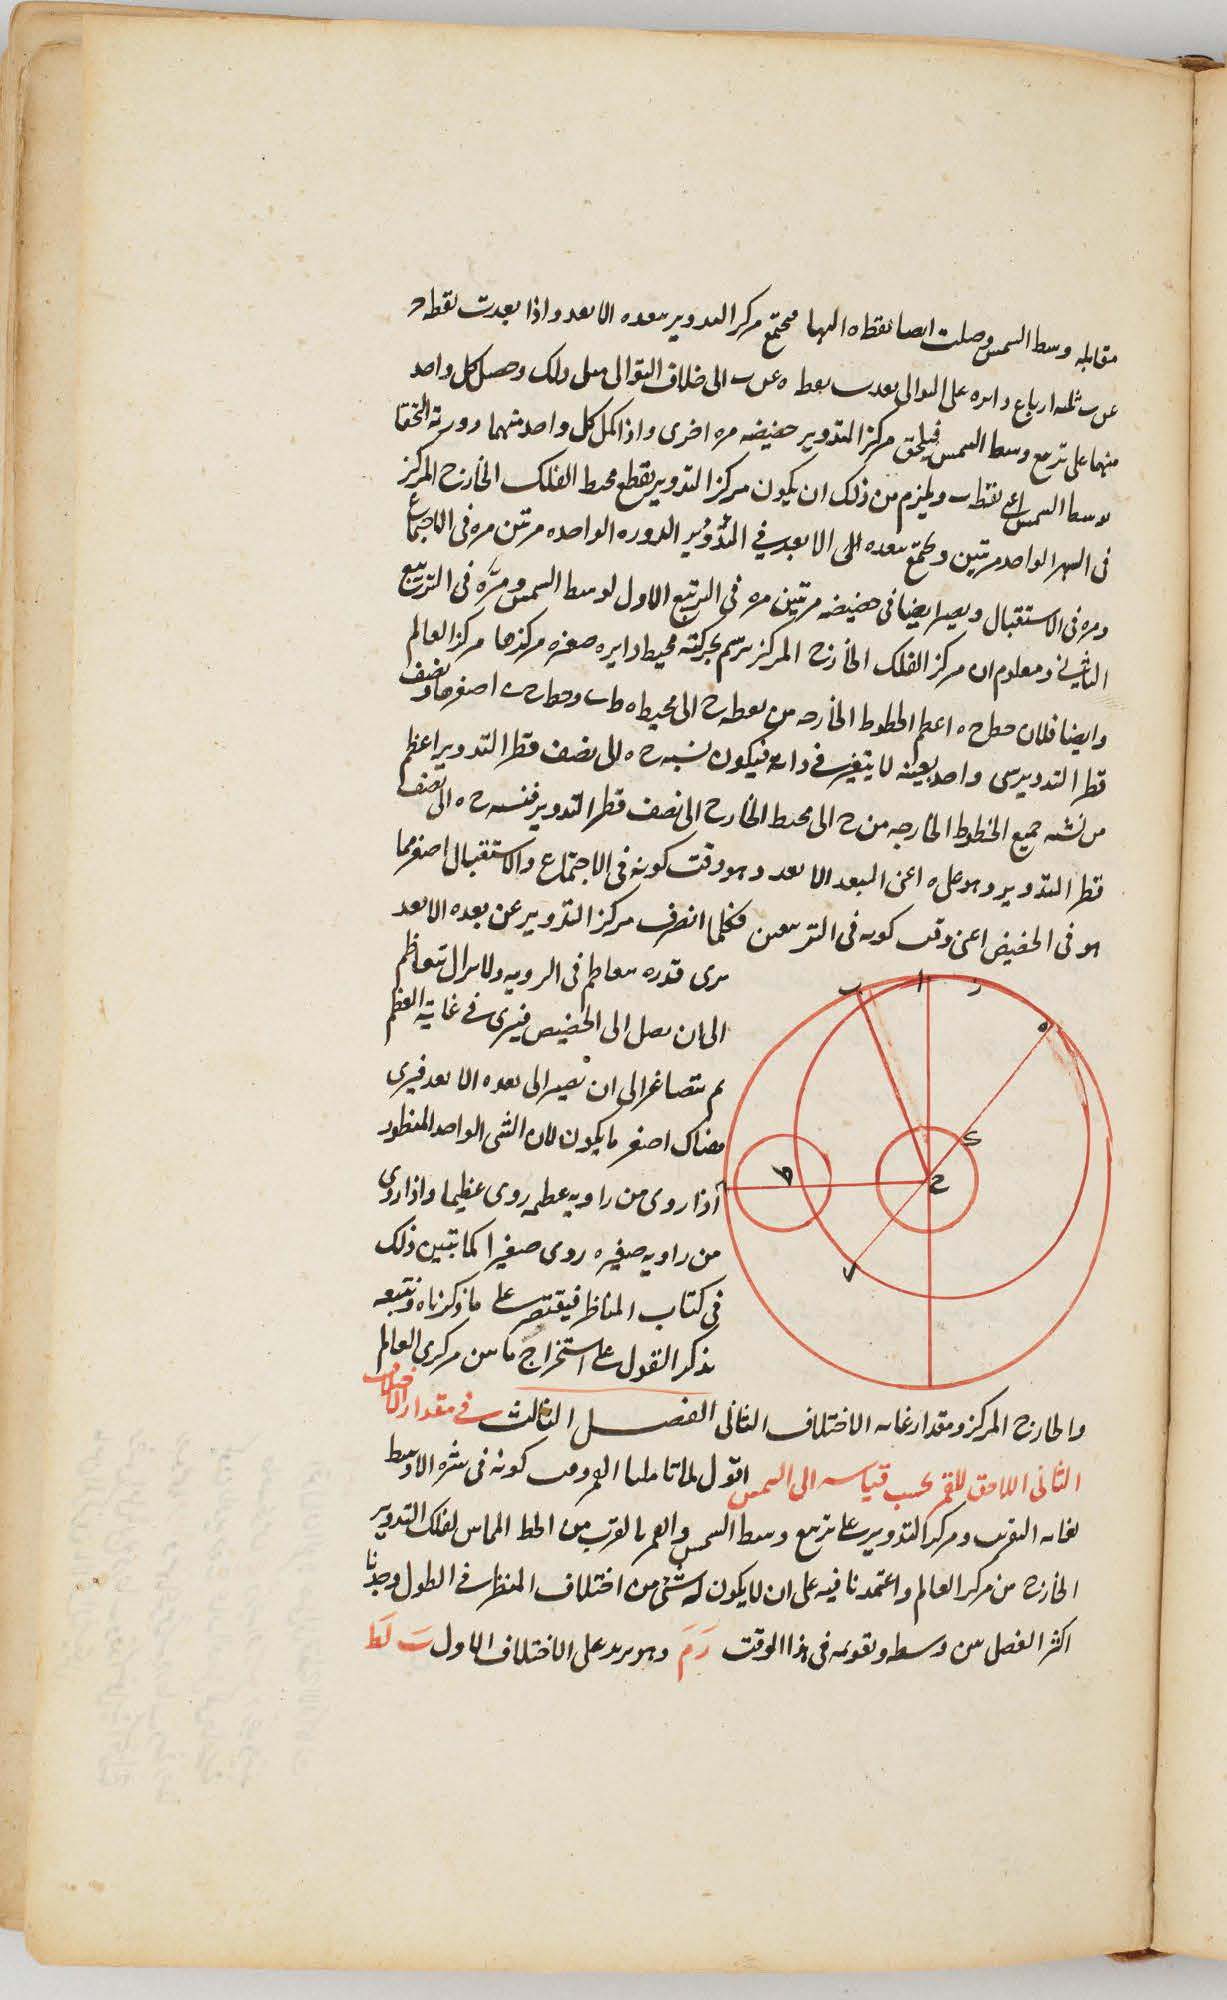 مقابله وسط الشمس وصلت ايضا نقطة ه اليها فيجتمع مركز التدوير ببعده الابعد واذا بعدت نقطة ح
عن ب ثلثه ارباع دايره على التوالى بعدت نقطة ه عن ب الى خلاف التوالى مثل ذلك وحصل كل واحد
منهما على تربيع وسط الشمس فيلحق مركز التدوير حضيضه مره اخرى واذا اكمل كل واحد منهما دورته التحقا
بوسط الشمس اعنى نقطة ب ويلزم من ذلك ان يكون مركز التدوير يقطع محيط الفلك الخارج المركز
فى الشهر الواحد مرتين ويجتمع ببعده الابعد فى الدوره الواحده مرتين مره فى الاجتماع
ومره فى الاستقبال ويصير ايضا فى حضيضه مرتين مره فى التربيع الاول لوسط الشمس ومره فى التربيع
الثانى ومعلوم ان مركز الفلك الخارج المركز يرسم بحركته محيط دايره صغره مركزها مركز العالم
وايضا فلان خط ح ه اعظم الخطوط الخارجه من نقطة ح الى محيط ه ط ب وخط ح ب اصغرها ونصف
قطر التدوير شى واحد بعينه لا يتغير فى ذاته فيكون نسبه ح ه الى نصف قطر التدوير اعظم
من نسبه جميع الخطوط الخارجه من ح الى محيط الخارج الى نصف قطر التدوير فنسبه ح ه الى نصف
قطر التدوير وهو على ه اعنى البعد الابعد وهو وقت كونه فى الاجتماع والاستقبال اصغر مما
هو فى الحضيض اعنى وقت كونه فى التربيعين فكلما انصرف مركز التدوير عن بعده الابعد
يرى قدره يتعاظم فى الرويه ولا يزال يتعاظم
الى ان يصل الى الحضيض فيرى فى غاية العظم
ثم يتصاغر الى ان يصير الى بعده الابعد فيرى
هناك اصغر ما يكون لان الشى الواحد المنظور
اذا روى من زاويه عظيمه روى عظيما واذا روى
من زاويه صغيره روى صغيرا كما تبين ذلك
فى كتاب المناظر فيقتصر على ما ذكرناه ونتبعه
بذكر القول على استخراج ما بين مركزى العالم
والخارج المركز ومقدار غايه الاختلاف الثانى الفصل الثالث فى مقدار الاختلاف
الثانى اللاحق للقمر بحسب قياسه الى الشمس اقول لما تاملنا القمر وقت كونه فى سيره الاوسط
لغايه القرب ومركز التدوير على تربيع وسط الشمس والقمر بالقرب من الخط المماس لفلك التدوير
الخارج من مركز العالم واعتمدنا فيه على ان لا يكون له شى من اختلاف المنظر فى الطول وجدنا
اكثر الفصل بين وسطه وتقويمه فى هذا الوقت ز م وهو يزيد على الاختلاف الاول ب لط
ب ا ز ه
ى ح ط